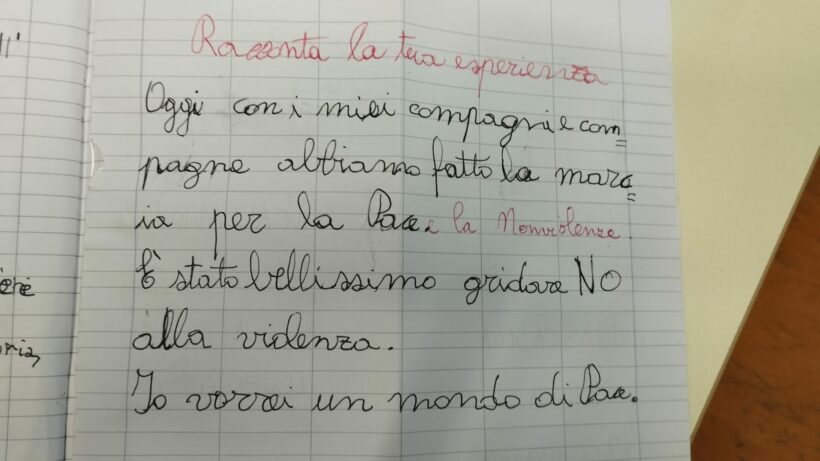 ll'
Racconta la tua esperienza
Oggi con i miei compagni e com=
pagne abbiamo fatto la marc=
ia per la Pace. e la Nonviolenza.
È stato bellissimo gridare NO
alla violenza.
Io vorrei un mondo di Pace.